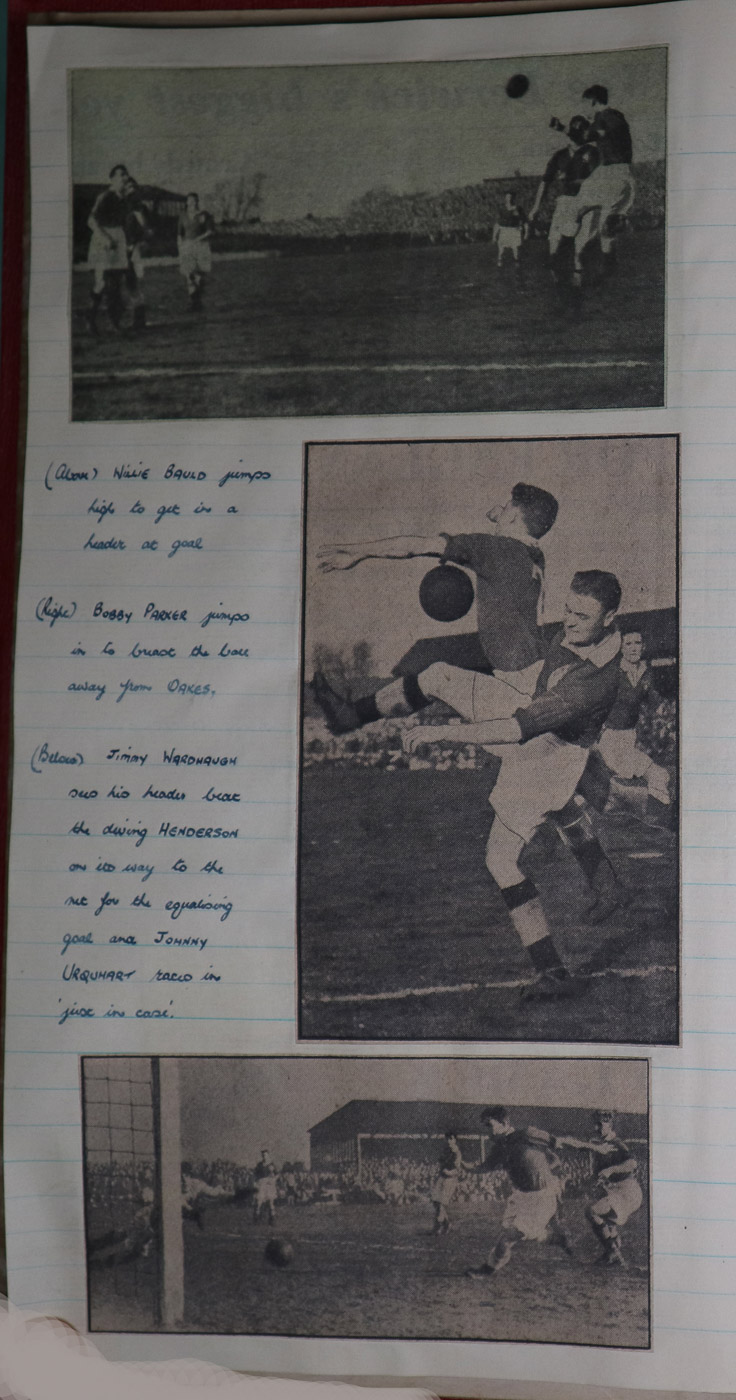 (Above) WILLIE BAULD jumps
high to get in a
header at goal
(Right) BOBBY PARKER jumps
in to breast the ball
away from OAKES.
(Below) JIMMY WARDHAUGH
sees his header beat
the diving HENDERSON
on its way to the
net for the equalising
goal and JOHNNY
URQUHART races in
'just in case'.